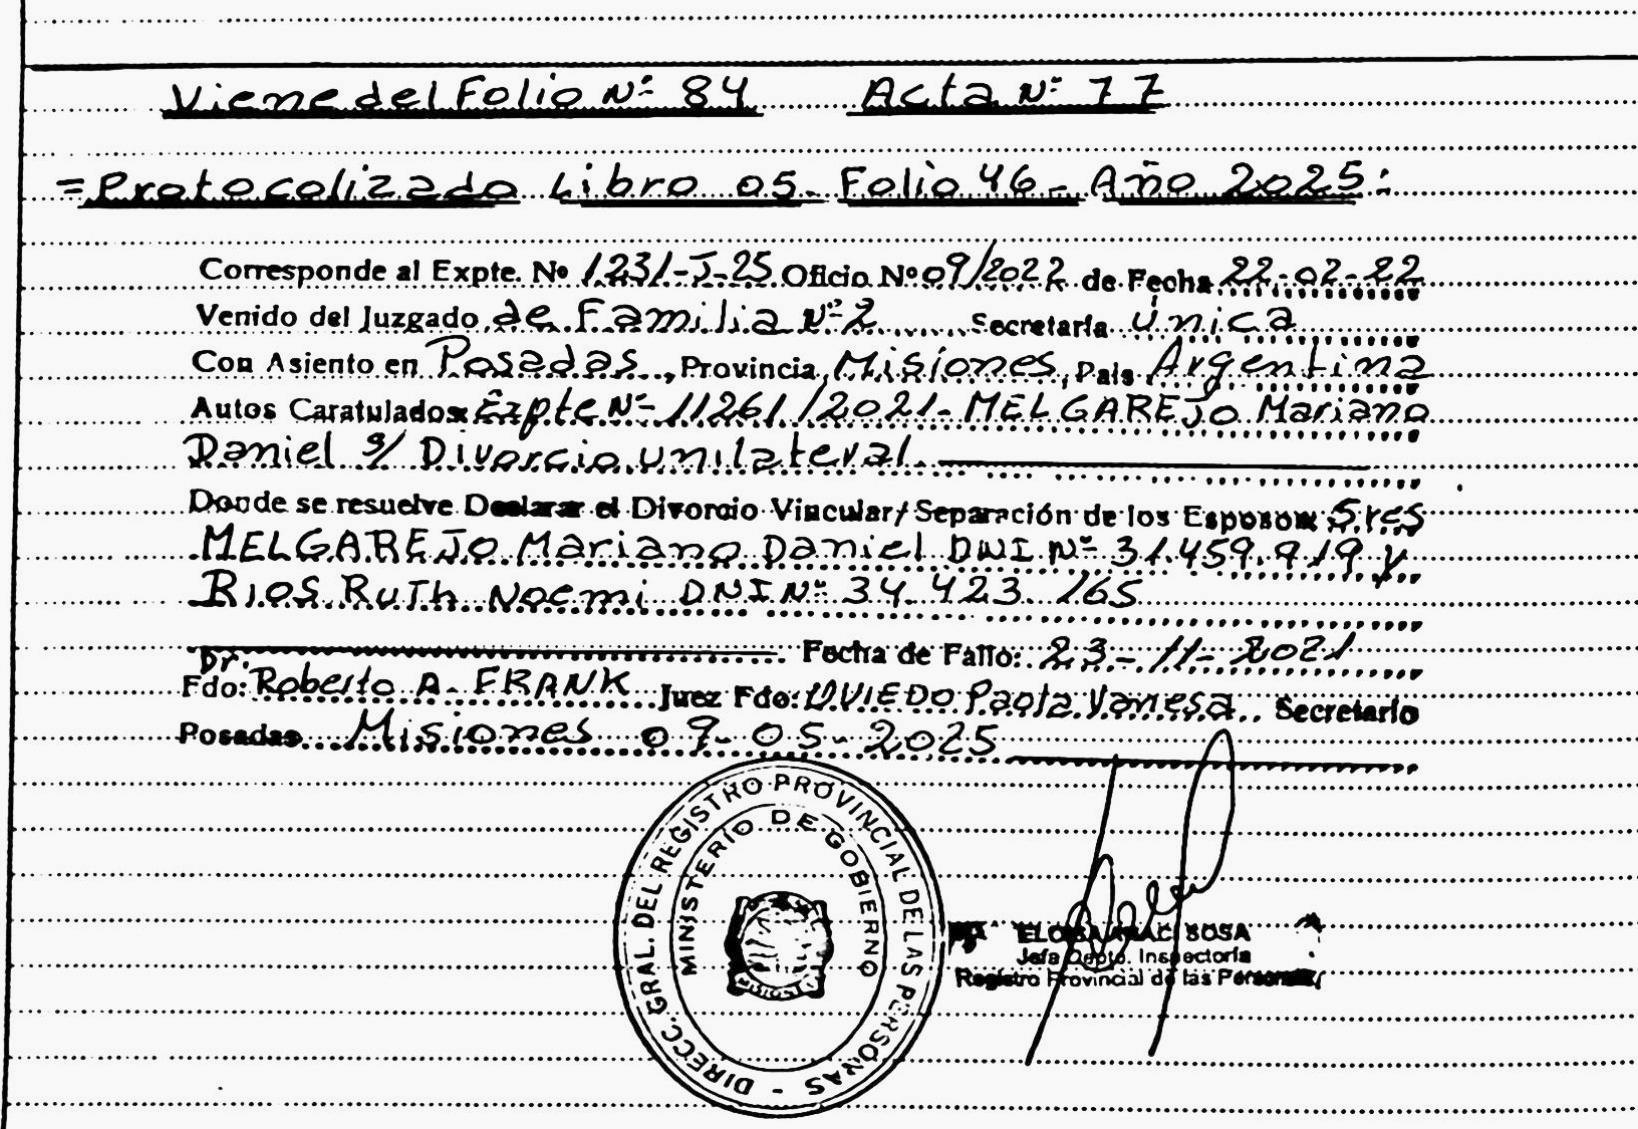 Viene del Folio Nº 84 Acta Nº 77
= Protocolizado Libro 05- Folio 46- Año 2025:
Corresponde al Expte. Nº 1231-J-25 Oficio Nº 09/2022 de Fecha 22-02-22
Venido del Juzgado de Familia Nº 2 Secretaría única
Con Asiento en Posadas, Provincia Misiones, País Argentina
Autos Caratulados: Expte Nº 11261/2021- MELGAREJO Mariano
Daniel s/ Divorcio unilateral.
Donde se resuelve Declarar el Divorcio Vincular/Separación de los Esposos: Sres
MELGAREJO Mariano Daniel DNI Nº 31.459.919 y
RIOS Ruth Noemi DNI Nº 34.423.165
Fecha de Fallo: 23-11-2021
Fdo: Dr. Roberto A. FRANK Juez Fdo: OVIEDO Paola Vanesa.. Secretario
Posadas Misiones 09-05-2025
DIRECC. GRAL. DEL REGISTRO PROVINCIAL DE LAS PERSONAS -
MINISTERIO DE GOBIERNO
MISIONES
ELOISA ARACI SOSA
Jefa Depto. Inspectoría
Registro Provincial de las Personas